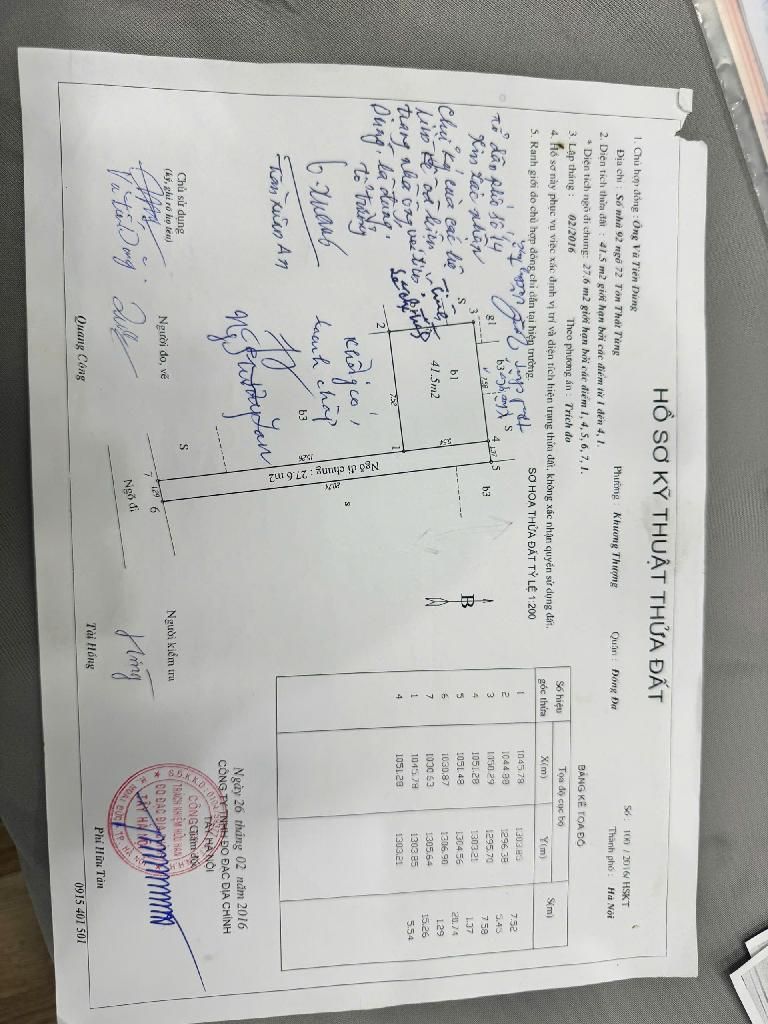 HỒ SƠ KỸ THUẬT THỬA ĐẤT
Số: 100 / 2016/ HSKT
1. Chủ hợp đồng : Ông Vũ Tiến Dũng
Địa chỉ : Số nhà 92 ngõ 72 Tôn Thất Tùng Phường : Khương Thượng Quận : Đống Đa Thành phố : Hà Nội
2. Diện tích thửa đất : 41.5 m2 giới hạn bởi các điểm từ 1 đến 4, 1.
* Diện tích ngõ đi chung: 27.6 m2 giới hạn bởi các điểm 1, 4, 5, 6, 7, 1.
3. Lập tháng : 02/2016 Theo phương án : Trích đo
4. Hồ sơ này phục vụ việc xác định vị trí và diện tích hiện trạng thửa đất, không xác nhận quyền sử dụng đất.
5. Ranh giới do chủ hợp đồng chỉ dẫn tại hiện trường.
SƠ HỌA THỬA ĐẤT TỶ LỆ 1:200
B
g1
s
3
b3
7.58
s
4
1.37
5
b3
b1
41.5m2
5.54
2
7.52
1
Ngõ đi chung : 27.6 m2
15.26
20.74
s
b3
s
7
1.29
6
Ngõ đi
BẢNG KÊ TỌA ĐỘ
Số hiệu góc thửa Tọa độ cục bộ S(m)
X(m) Y(m)
1 1045.78 1303.85 7.52
2 1044.88 1296.38 5.45
3 1050.29 1295.70 7.58
4 1051.28 1303.21 1.37
5 1051.48 1304.56 20.74
6 1030.87 1306.90 1.29
7 1030.63 1305.64 15.26
1 1045.78 1303.85 5.54
4 1051.28 1303.21
Tổ dân phố số 14
Xin xác nhận
Chữ ký của các hộ
liền kề và hiện
trạng nhà ông Vũ Tiến
Dũng là đúng.
Tổ trưởng
Trần Xuân An
Không có
tranh chấp
Ngày 26 tháng 02 năm 2016
CÔNG TY TNHH ĐO ĐẠC ĐỊA CHÍNH
TÂY HÀ NỘI
Giám đốc
Chủ sử dụng
(ký, ghi rõ họ tên)
Vũ Tiến Dũng
Người đo, vẽ
Quang Công
Người kiểm tra
Hồng
Tài Hồng
Phí Hữu Tân
0915 401 501